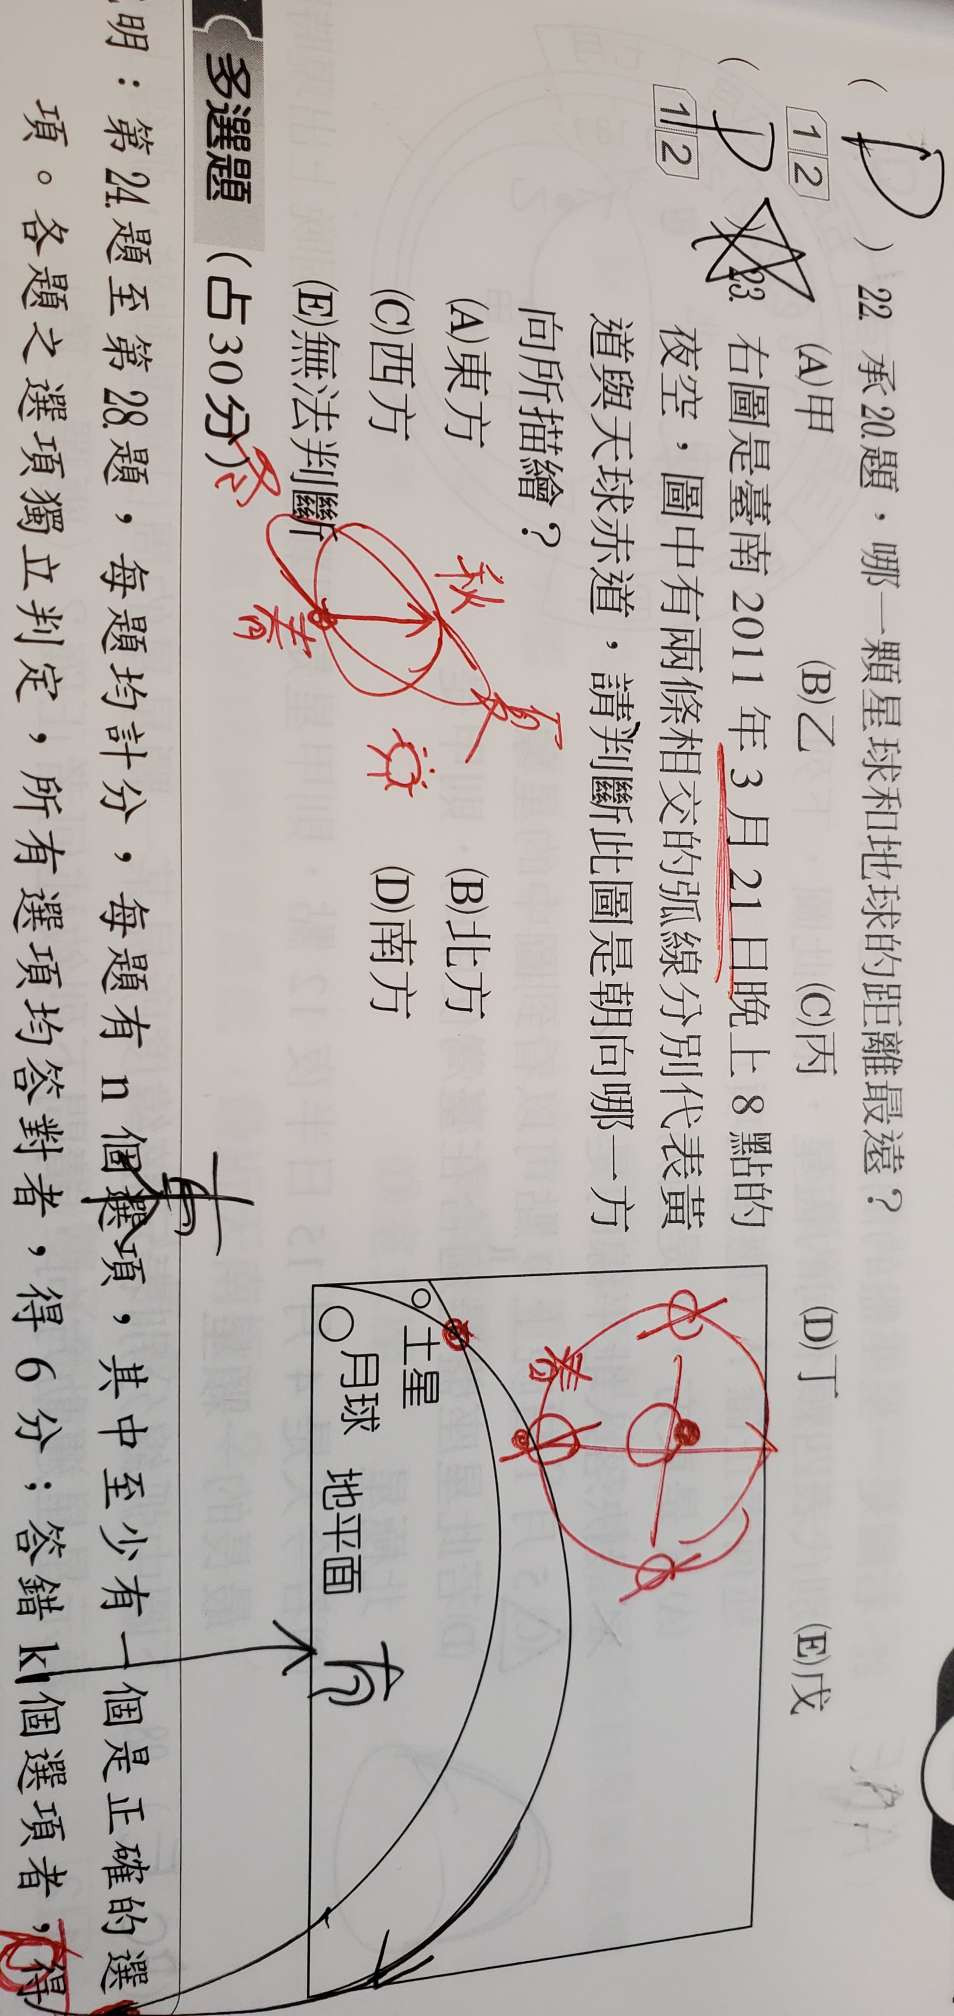 ( D ) 22. 承20.題，哪一顆星球和地球的距離最遠？
1 2 (A)甲 (B)乙 (C)丙 (D)丁 (E)戊
( D 23. 右圖是臺南 2011 年 3 月 21 日晚上 8 點的
1 2 夜空，圖中有兩條相交的弧線分別代表黃
道與天球赤道，請判斷此圖是朝向哪一方
向所描繪？
(A)東方 (B)北方
(C)西方 (D)南方
(E)無法判斷
秋
夏
春
冬
春
土星
月球
地平面
南
東
多選題（占30分）
明：第24.題至第28.題，每題均計分，每題有 n 個選項，其中至少有一個是正確的選
項。各題之選項獨立判定，所有選項均答對者，得 6 分；答錯 k 個選項者，得